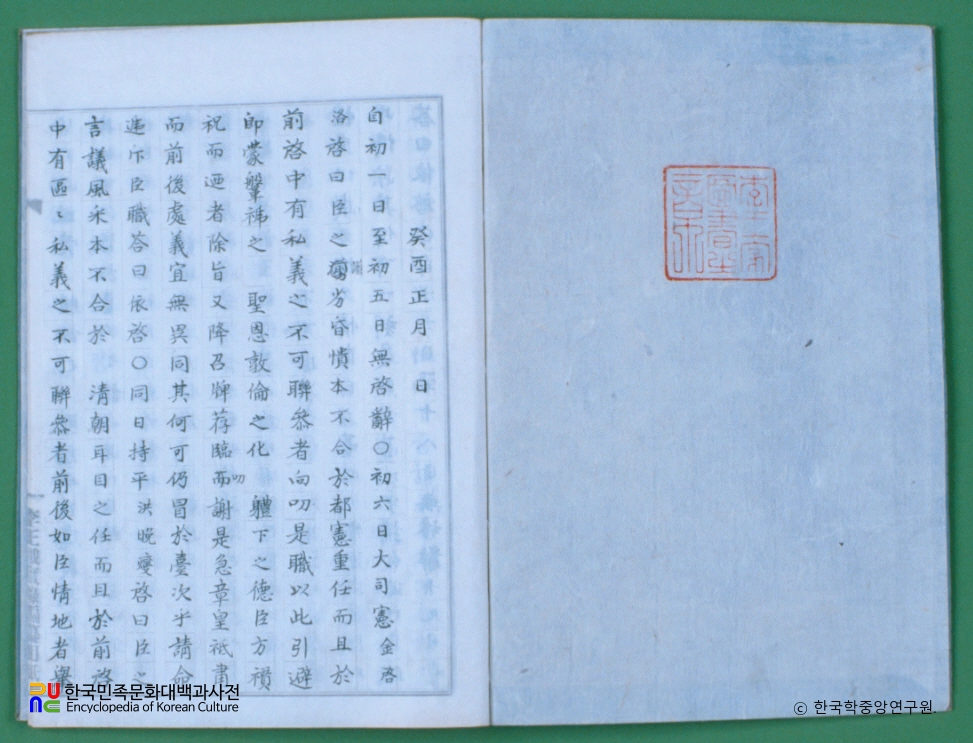 癸酉正月 日
自初一日至初五日無啓辭○初六日大司憲金啓
洛啓曰臣之劣昏憒本不合於都憲重任而且於
前啓中有私義之不可聯叅者向叨是職以此引避
卽蒙鞶褫之 聖恩敦倫之化 軆下之德臣方攢
祝而迺者除旨又降召牌荐臨而叨謝是急章皇祗肅
而前後處義宜無異同其何可仍冒於臺次乎請命
遆斥臣職答曰依啓○同日持平洪晩燮啓曰臣之
言議風采本不合於 清朝耳目之任而且於前啓
中有區〻私義之不可聯叅者前後如臣情地者擧
李王家圖書之章
한국민족문화대백과사전
Encyclopedia of Korean Culture
ⓒ 한국학중앙연구원